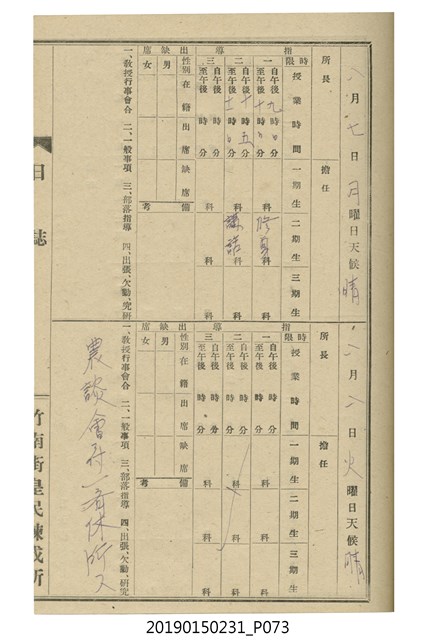 八月七日月曜日天候晴
所長　擔任
指導
時限　授業時間　一期生　二期生　三期生
一　自午後九時分　至午後十時分　科　修身科　科
二　自午後十時五分　至午後十一時分　科　講話科　科
三　自午後時分　至午後時分　科　科　科
出缺席
性別　在籍　出席　缺席　備考
男
女
一、教授行事會合　二、一般事項　三、部落指導　四、出張、欠勤、究研
日誌
八月八日火曜日天候晴
所長　擔任
指導
時限　授業時間　一期生　二期生　三期生
一　自午後時分　至午後時分　科　科　科
二　自午後時分　至午後時分　科　科　科
三　自午後時分　至午後時分　科　科　科
出缺席
性別　在籍　出席　缺席　備考
男
女
一、教授行事會合　二、一般事項　三、部落指導　四、出張、欠勤、研究
農談會
休所
竹南街皇民鍊成所
20190150231_P073